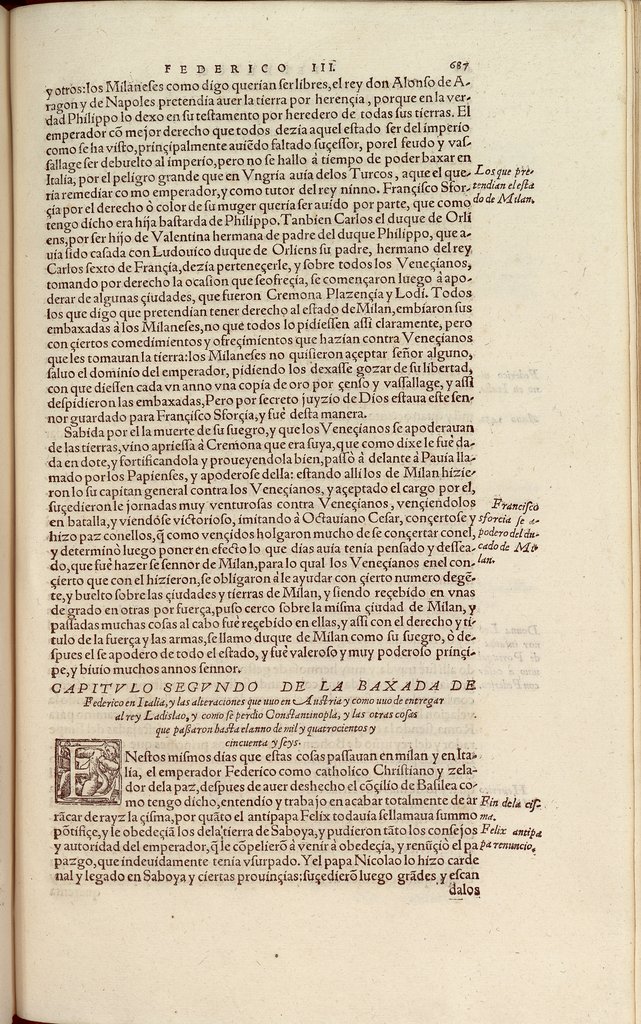 FEDERICO III. 687
y otros: los Milaneses como digo querian ser libres, el rey don Alonso de A-
ragon y de Napoles pretendia auer la tierra por herençia, porque en la ver-
dad Philippo lo dexo en su testamento por heredero de todas sus tierras. El
emperador cõ mejor derecho que todos dezia aquel estado ser del imperio
como se ha visto, prinçipalmente auiẽdo faltado suçessor, porel feudo y vas-
sallage ser debuelto al imperio, pero no se hallo à tiempo de poder baxar en
Italia, por el peligro grande que en Vngria auia delos Turcos, aque el que-
ria remediar como emperador, y como tutor del rey ninno. Françisco Sfor-
çia por el derecho ò color de su muger queria ser auido por parte, que como
tengo dicho era hija bastarda de Philippo. Tanbien Carlos el duque de Orli
ens, por ser hijo de Valentina hermana de padre del duque Philippo, que a-
uia sido casada con Ludouico duque de Orliens su padre, hermano del rey
Carlos sexto de Françia, dezia perteneçerle, y sobre todos los Veneçianos,
tomando por derecho la ocasion que se ofreçia, se començaron luego à apo-
derar de algunas çiudades, que fueron Cremona Plazençia y Lodi. Todos
los que digo que pretendian tener derecho al estado de Milan, embiaron sus
embaxadas à los Milaneses, no què todos lo pidiessen assi claramente, pero
con çiertos comedimientos y ofreçimientos que hazian contra Veneçianos
que les tomauan la tierra: los Milaneses no quisieron açeptar señor alguno,
saluo el dominio del emperador, pidiendo los dexasse gozar de su libertad,
con que diessen cada vn anno vna copia de oro por çenso y vassallage, y assi
despidieron las embaxadas, Pero por secreto juyzio de Dios estaua este sen-
nor guardado para Françisco Sforçia, y fuè desta manera.
Sabida por el la muerte de su suegro, y que los Veneçianos se apoderauan
de las tierras, vino apriessa à Cremona que era suya, que como dixe le fuè da-
da en dote, y fortificandola y proueyendola bien, passò à delante à Pauia lla-
mado por los Papienses, y apoderose della: estando alli los de Milan hizie-
ron lo su capitan general contra los Veneçianos, y açeptado el cargo por el,
suçedieron le jornadas muy venturosas contra Veneçianos, vençiendolos
en batalla, y viendose victorioso, imitando à Octauiano Cesar, conçertose y
hizo paz conellos, q̃ como vençidos holgaron mucho de se conçertar conel,
y determinò luego poner en efecto lo que dias auia tenia pensado y dessea-
do, que fuè hazer se sennor de Milan, para lo qual los Veneçianos enel con-
çierto que con el hizieron, se obligaron à le ayudar con çierto numero degẽ-
te, y buelto sobre las çiudades y tierras de Milan, y siendo reçebido en vnas
de grado en otras por fuerça, puso cerco sobre la misma çiudad de Milan, y
passadas muchas cosas al cabo fuè reçebido en ellas, y assi con el derecho y ti-
tulo de la fuerça y las armas, se llamo duque de Milan como su suegro, ò de-
spues el se apodero de todo el estado, y fuè valeroso y muy poderoso prinçi-
pe, y biuio muchos annos sennor.
CAPITVLO SEGVNDO DE LA BAXADA DE
Federico en Italia, y las alteraciones que uuo en Austria y como uuo de entregar
al rey Ladislao, y como se perdio Constantinopla, y las otras cosas
que passaron hasta el anno de mil y quatrocientos y
cincuenta y seys.
ENestos mismos dias que estas cosas passauan en milan y en Ita-
lia, el emperador Federico como catholico Christiano y zela-
dor dela paz, despues de auer deshecho el cõçilio de Basilea co-
mo tengo dicho, entendio y trabajo en acabar totalmente de ar
rãcar de rayz la çisma, por quãto el antipapa Felix todauia se llamaua summo
põtifiçe, y le obedeçiã los dela tierra de Saboya, y pudieron tãto los consejos
y autoridad del emperador, q̃ le cõpelierõ à venir à obedeçia, y renũçiò el pa
pazgo, que indeuidamente tenia vsurpado. Y el papa Nicolao lo hizo carde
nal y legado en Saboya y ciertas prouinçias: suçedierõ luego grãdes y escan
dalos
Los que pre-
tendian el esta
do de Milan.
Francisco
sforcia se a-
podero del du-
cado de Mi-
lan.
Fin de la cis-
ma.
Felix antipa
pa renuncio.